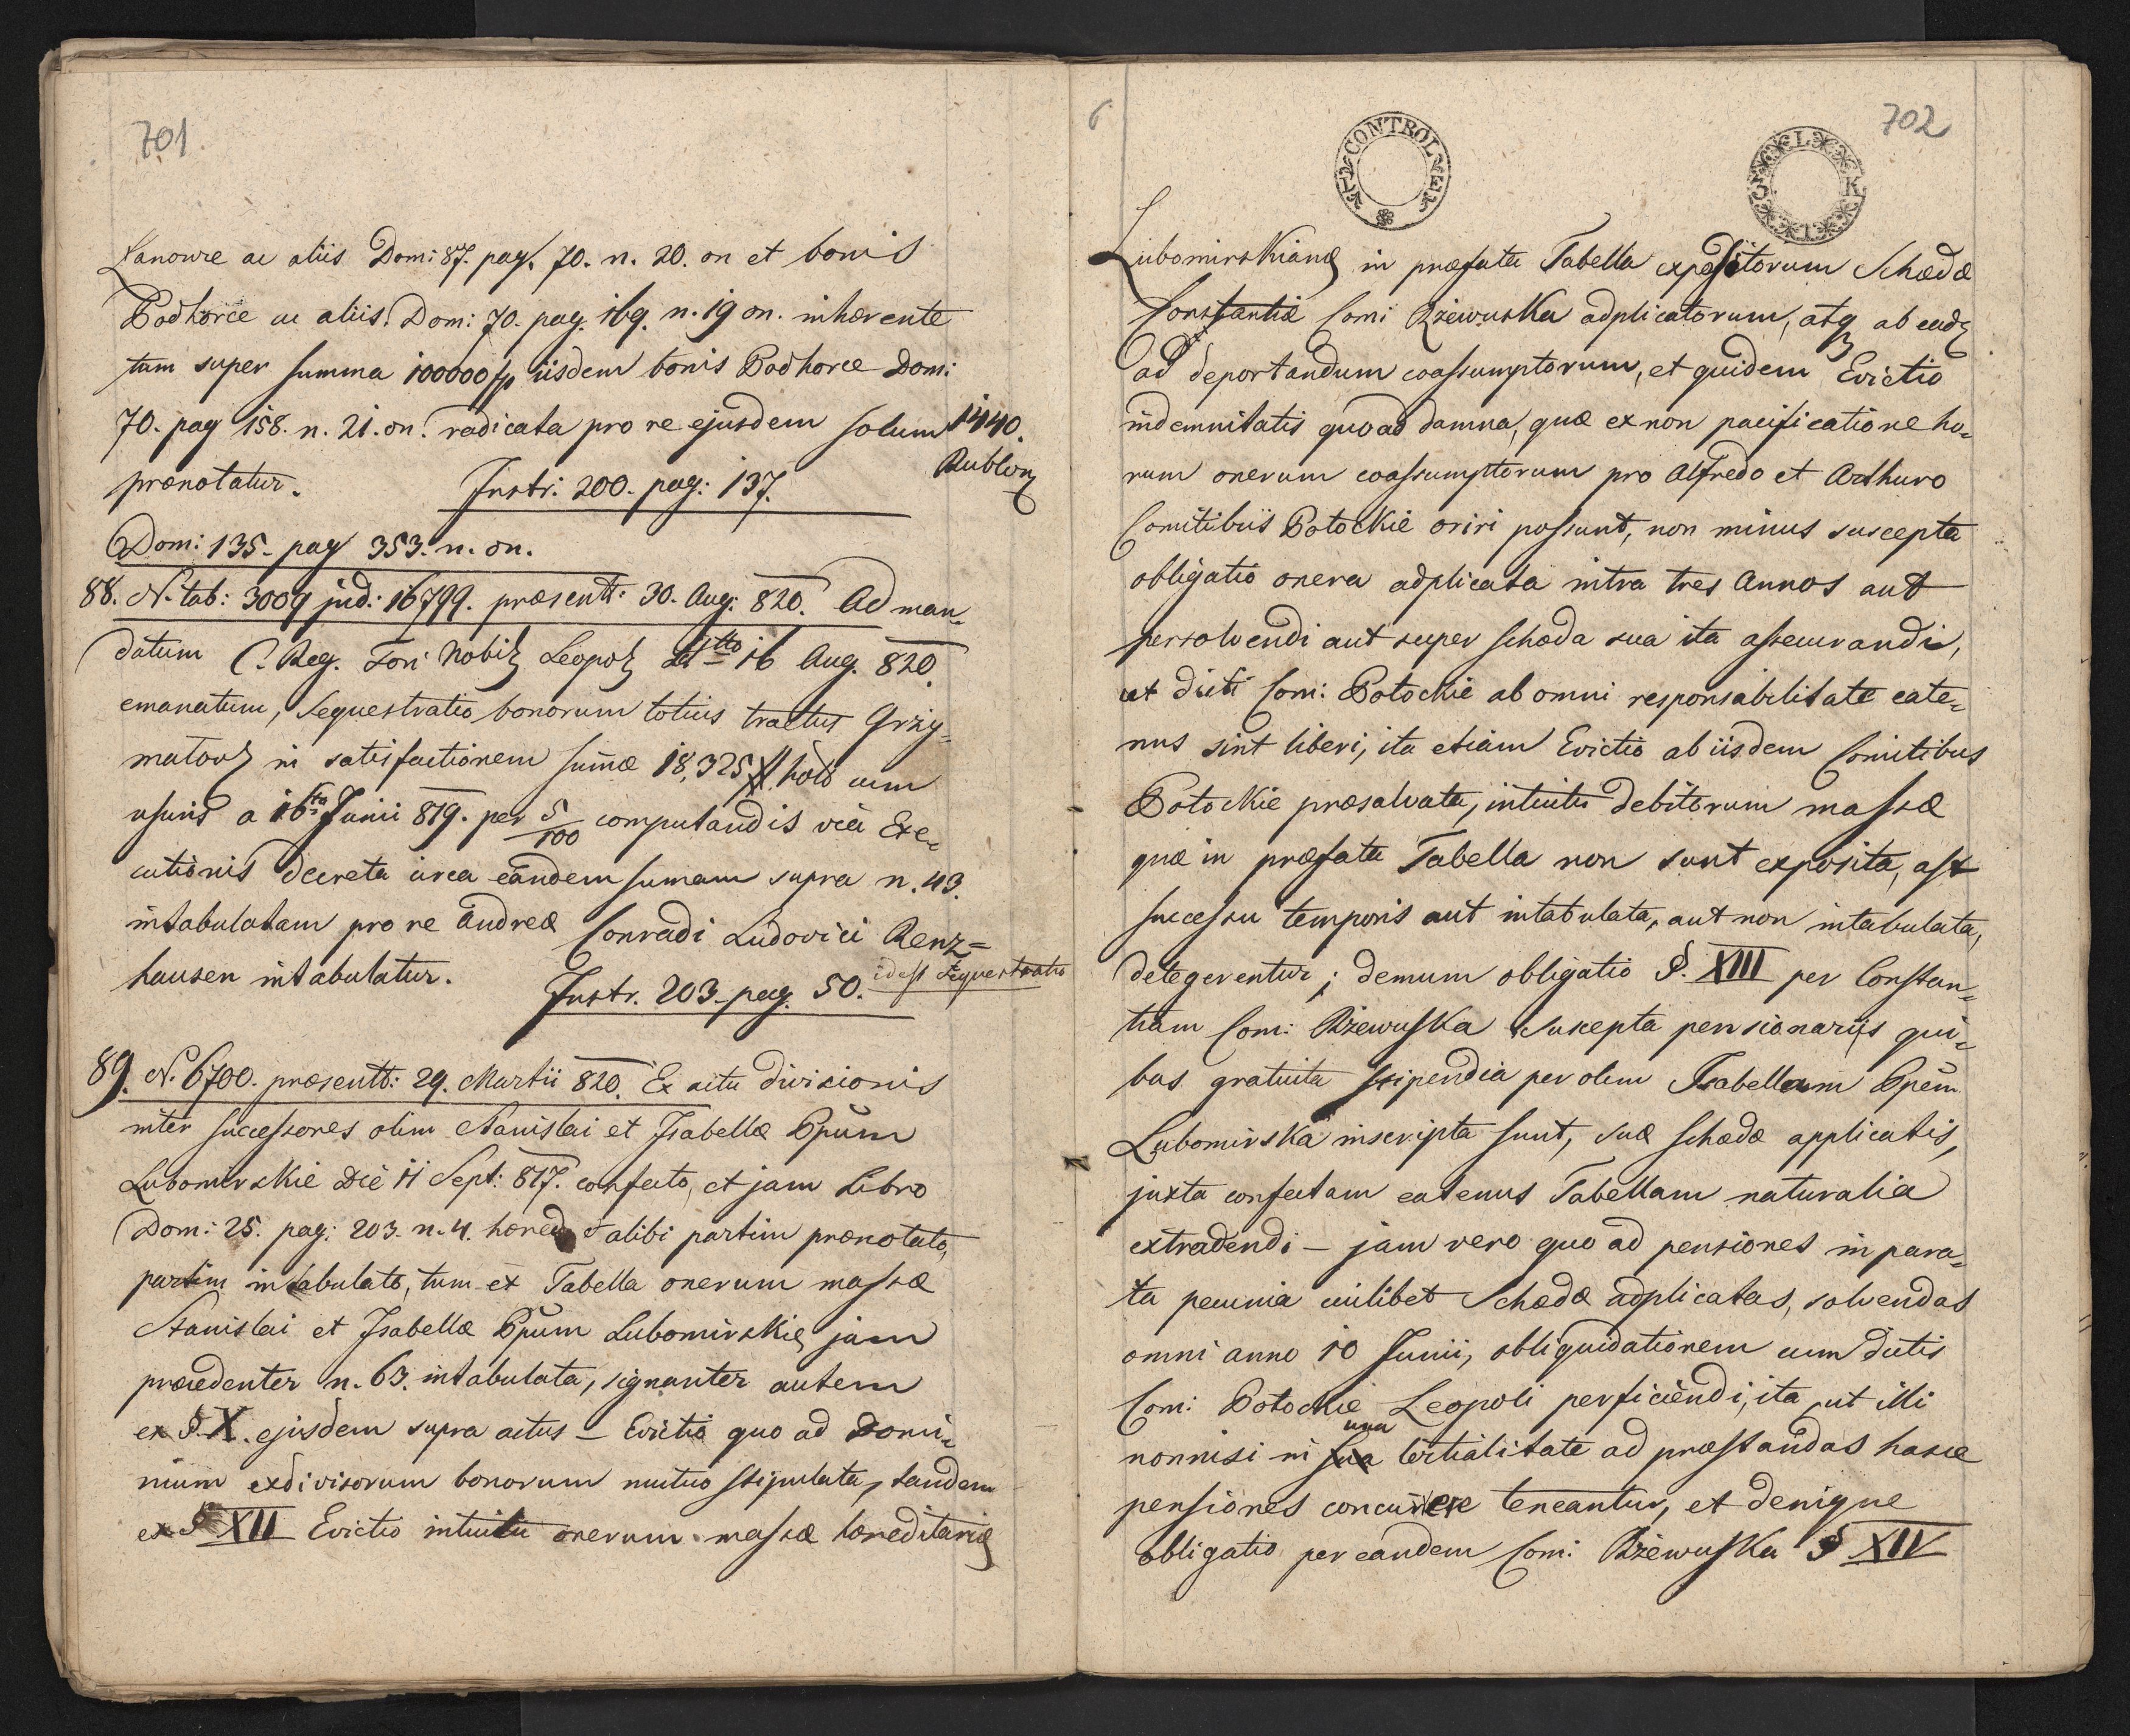 701.
Łanowce ac aliis Dom: 87. pag. 70. n. 20. on et bonis
Podhorce ac aliis. Dom: 70. pag. 169. n. 19 on. inhærente
tum super summa 100000 fp iisdem bonis Podhorce Dom:
70. pag 158. n. 21. on. radicata pro re ejusdem solum 1440.
Rublon
prænotatur. Instr: 200. pag: 137.
Dom: 135. pag 353. n. on.
88. N. tab: 3009 jud: 16799. præsentt: 30. Aug: 820. Ad man=
datum C. Reg. Fori Nobil Leopol ddtto 16 Aug. 820.
emanatum, Sequestratio bonorum totius tractus Grzy=
matow in satisfactionem sumæ 18,325 # holl cum
usuris a 16ta Junii 819. per 5/100 computandis via Exe=
cutionis decreta circa eandem sumam supra n. 43.
intabulatam pro re Andreæ Conradi Ludovici Renz=
hausen intabulatur. Instr. 203. pag. 50. idest Sequestratio
89. N. 6700. præsentt: 29. Martii 820. Ex actu divisionis
inter successores olim Stanislai et Isabellæ Ppum
Lubomirskie die 11 Sept: 817. confecto, et jam Libro
Dom: 25. pag: 203. n. 4. hæred & alibi partim prænotato,
partim intabulato, tum ex Tabella onerum massæ
Stanislai et Isabellæ Ppum Lubomirskie jam
præcedenter n. 63. intabulata, signanter autem
ex §. X. ejusdem supra actus – Evictio quo ad Domi=
nium exdivisorum bonorum mutuo stipulata, tandem
ex § XII Evictio intuitu onerum massæ hæreditariæ
6
702
CONTROL
Lubomirskianæ in præfata Tabella expositorum Schedæ
Constantiæ Comi Rzewuska adplicatorum, atq ab eadz
ad deportandum coassumptorum, et quidem Evictio
indemnitatis quoad damna, quæ ex non pacificatione ho=
rum onerum coassumptorum pro Alfredo et Arthuro
Comitibus Potockie oriri possunt, non minus suscepta
obligatio onera adplicata intra tres Annos aut
persolvendi aut super scheda sua ita assecurandi,
ut dicti Com: Potockie ab omni responsabilitate eate=
nus sint liberi, ita etiam Evictio ab iisdem Comitibus
Potockie præsalvata, intuitu debitorum massæ
quæ in præfata Tabella non sunt exposita, ast
successu temporis aut intabulata, aut non intabulata,
detegerentur; demum obligatio §. XIII per Constan=
tiam Com: Rzewuska suscepta pensionariis qui=
bus gratuita stipendia per olim Isabellam Ppem
Lubomirska inscripta sunt, suæ schedæ applicatis,
juxta confectam eatenus Tabellam naturalia
extradendi – jam vero quo ad pensiones in para=
ta pecunia cuilibet Schedæ adplicatas, solvendas
omni anno 10 Junii, obliquidationem cum dictis
Com: Potockie Leopoli perficiendi, ita, ut illi
una
nonnisi in sua tertialitate ad præstandas hasce
pensiones concurrere teneantur, et denique
obligatio per eandem Com: Rzewuska § XIV